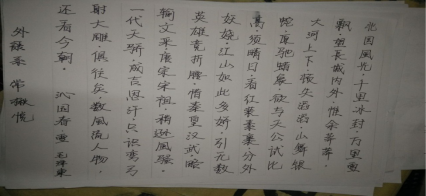 北国风光，千里冰封，万里雪
飘望长城内外，惟余莽莽，
大河上下，顿失滔滔，山舞银
蛇原驰蜡象，欲与天公试比
高，须晴日，看红装素裹，分外
妖娆。江山如此多娇，引无数
英雄竞折腰。惜秦皇汉武，略
输文采，唐宗宋祖，稍逊风骚。
一代天骄，成吉思汗，只识弯弓
射大雕。俱往矣，数风流人物，
还看今朝。 沁园春 雪 毛泽东
外语系 常